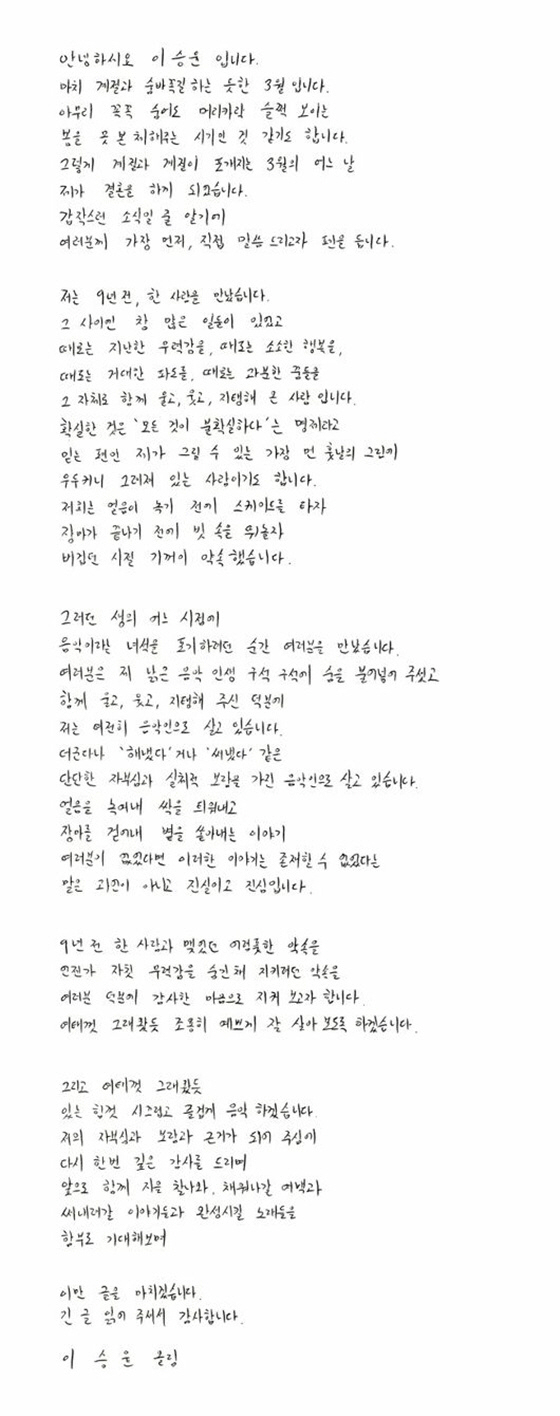 안녕하시오 이승윤 입니다.
마치 계절과 숨바꼭질 하는 듯한 3월 입니다.
아무리 꼭꼭 숨어도 머리카락 슬쩍 보이는
봄을 못 본 체해주는 시기인 것 같기도 합니다.
그렇게 계절과 계절이 포개지는 3월의 어느 날
제가 결혼을 하게 되었습니다.
갑작스런 소식일 줄 알기에
여러분께 가장 먼저, 직접 말씀 드리고자 펜을 듭니다.
저는 9년 전, 한 사람을 만났습니다.
그 사이엔 참 많은 일들이 있었고
때로는 지난한 무력감을, 때로는 소소한 행복을,
때로는 거대한 파도를, 때로는 과분한 꿈들을
그 자체로 함께 울고, 웃고, 지탱해 온 사람 입니다.
확실한 것은 '모든 것이 불확실하다'는 명제라고
믿는 편인 제가 그릴 수 있는 가장 먼 훗날의 그림에
우두커니 그려져 있는 사람이기도 합니다.
저희는 얼음이 녹기 전에 스케이트를 타자
장마가 끝나기 전에 빗 속을 뛰놀자
버겁던 시절 기꺼이 약속했습니다.
그러던 생의 어느 시점에
음악이라는 녀석을 포기하려던 순간 여러분을 만났습니다.
여러분은 제 낡은 음악 인생 구석 구석에 숨을 불어넣어 주셨고
함께 울고, 웃고, 지탱해 주신 덕분에
저는 여전히 음악인으로 살고 있습니다.
더군다나 '해냈다'거나 '써냈다' 같은
단단한 자부심과 실체적 보람을 가진 음악인으로 살고 있습니다.
얼음을 녹여내 싹을 틔워내고
장마를 걷어내 볕을 쏟아내는 이야기
여러분이 없었다면 이러한 이야기는 존재할 수 없었다는
말은 괴변이 아니고 진실이고 진심입니다.
9년 전 한 사람과 맺었던 어렴풋한 약속을
언젠가 자칫 무력감을 숨긴 채 지키려던 약속을
여러분 덕분에 감사한 마음으로 지켜 보고자 합니다.
여태껏 그래왔듯 조용히 예쁘게 잘 살아 보도록 하겠습니다.
그리고 여태껏 그래왔듯
있는 힘껏 시끄럽고 즐겁게 음악 하겠습니다.
저의 자부심과 보람과 근거가 되어 주심에
다시 한번 깊은 감사를 드리며
앞으로 함께 지을 찰나와, 채워나갈 여백과
써내려갈 이야기들과 완성시킬 노래들을
함부로 기대해보며
이만 글을 마치겠습니다.
긴 글 읽어 주셔서 감사합니다.
이 승 윤 올림